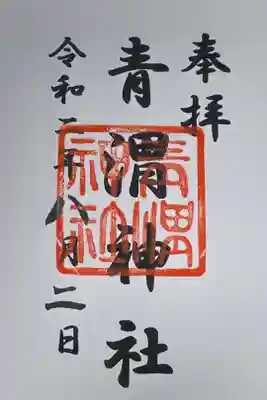 奉拝
青渭神社
令和二年八月二日
青渭
神社